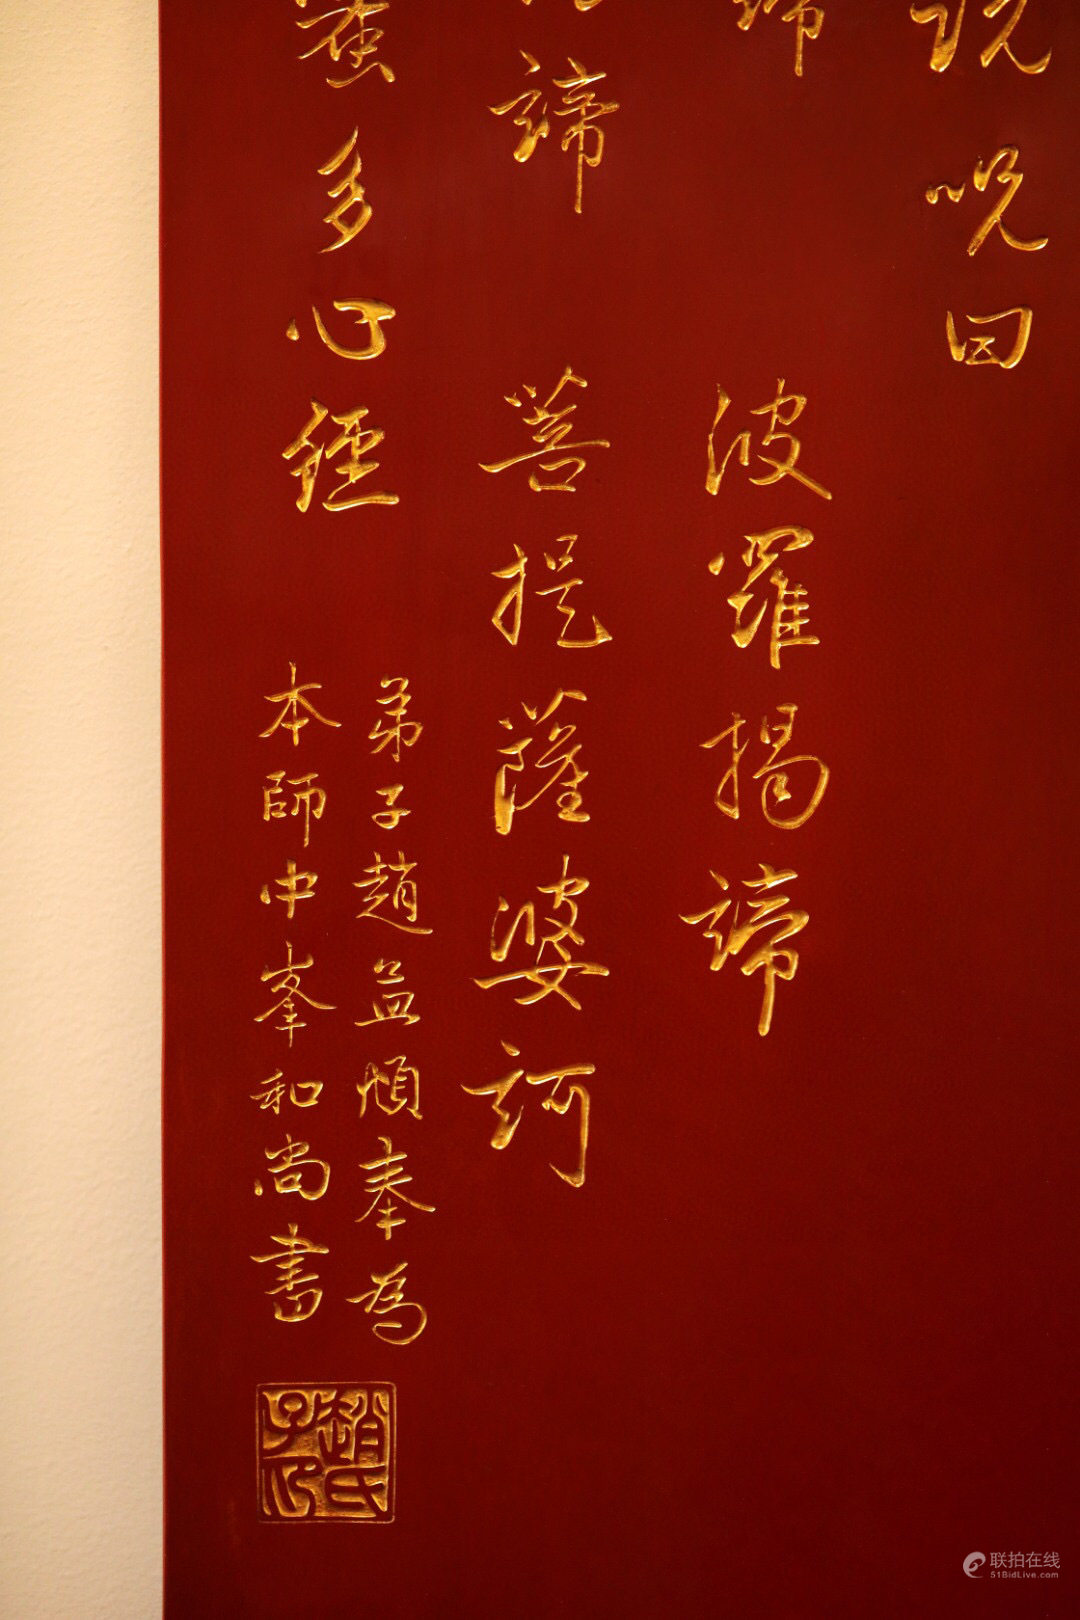 說呪曰
諦 波羅揭諦
諦 菩提薩婆訶
蜜多心經
弟子趙孟頫奉為
本師中峯和尚書
趙氏子昂
联拍在线
51BidLive.com